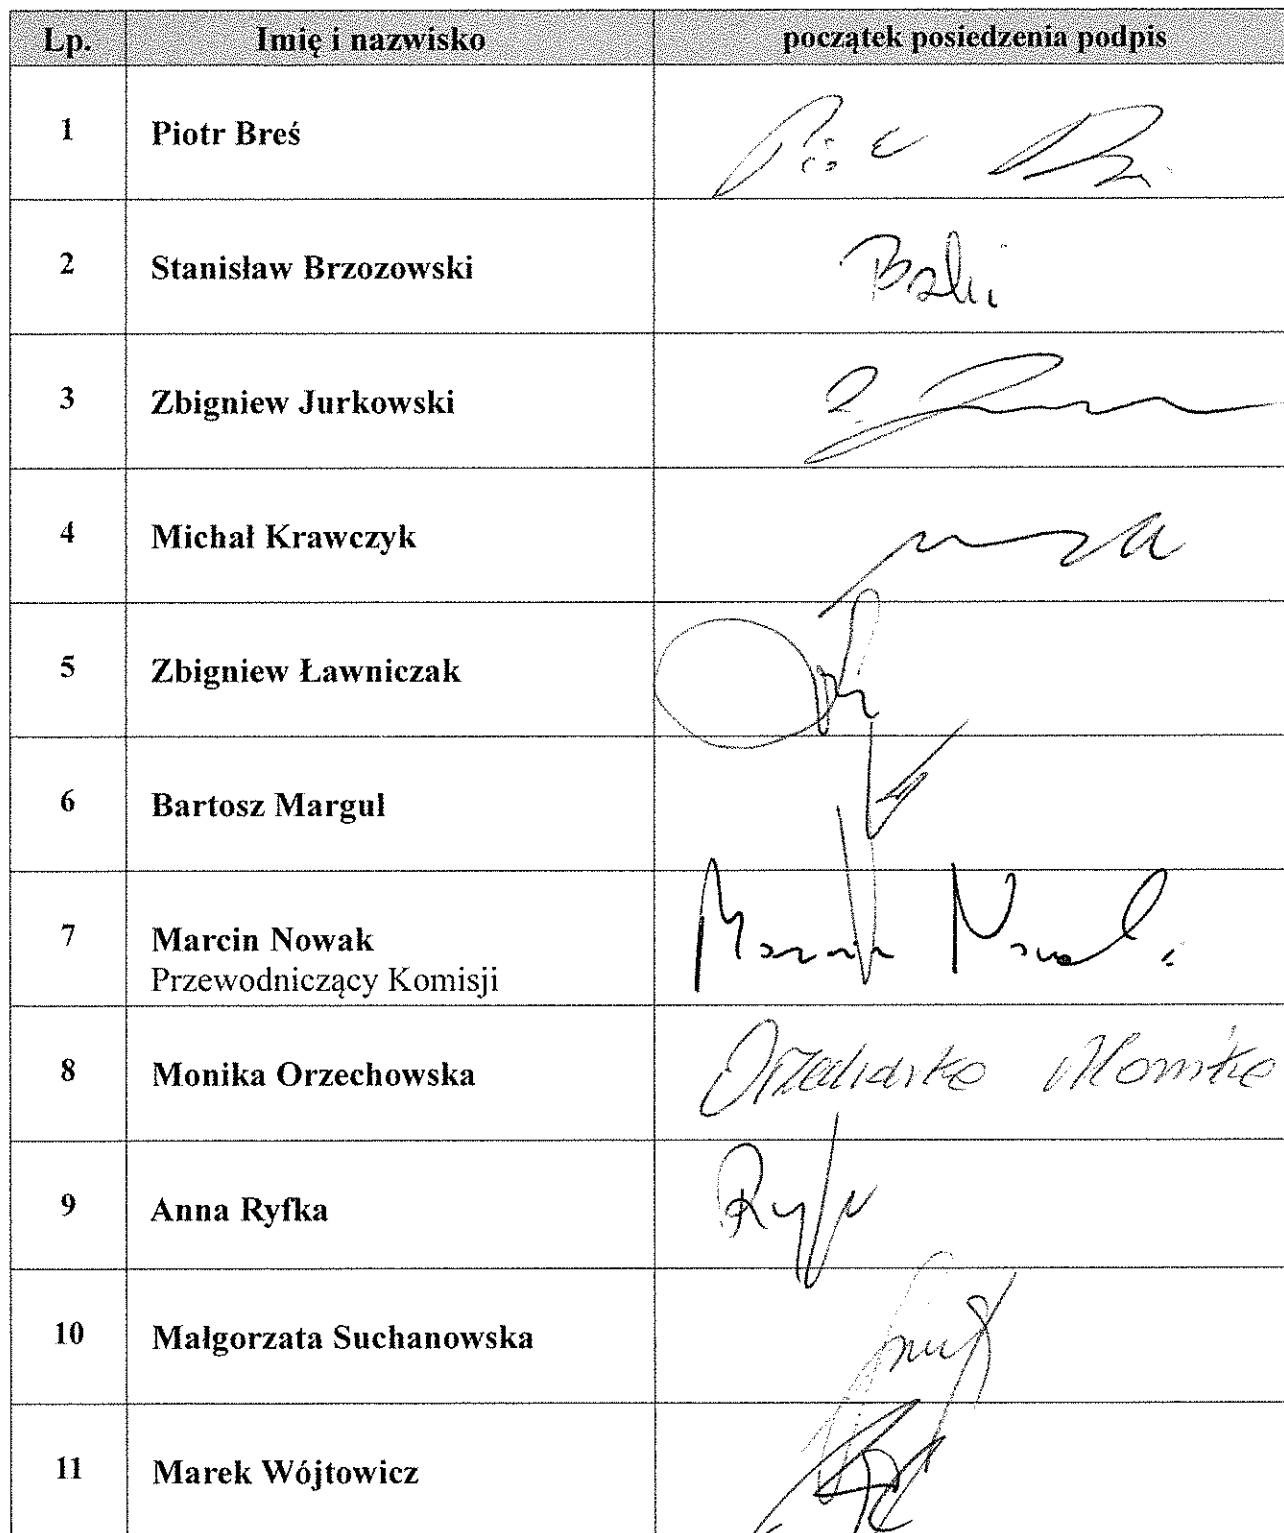 Lp. Imię i nazwisko początek posiedzenia podpis
1 Piotr Breś
2 Stanisław Brzozowski
3 Zbigniew Jurkowski
4 Michał Krawczyk
5 Zbigniew Ławniczak
6 Bartosz Margul
7 Marcin Nowak Marcin Nowak
Przewodniczący Komisji
8 Monika Orzechowska
9 Anna Ryfka
10 Małgorzata Suchanowska
11 Marek Wójtowicz